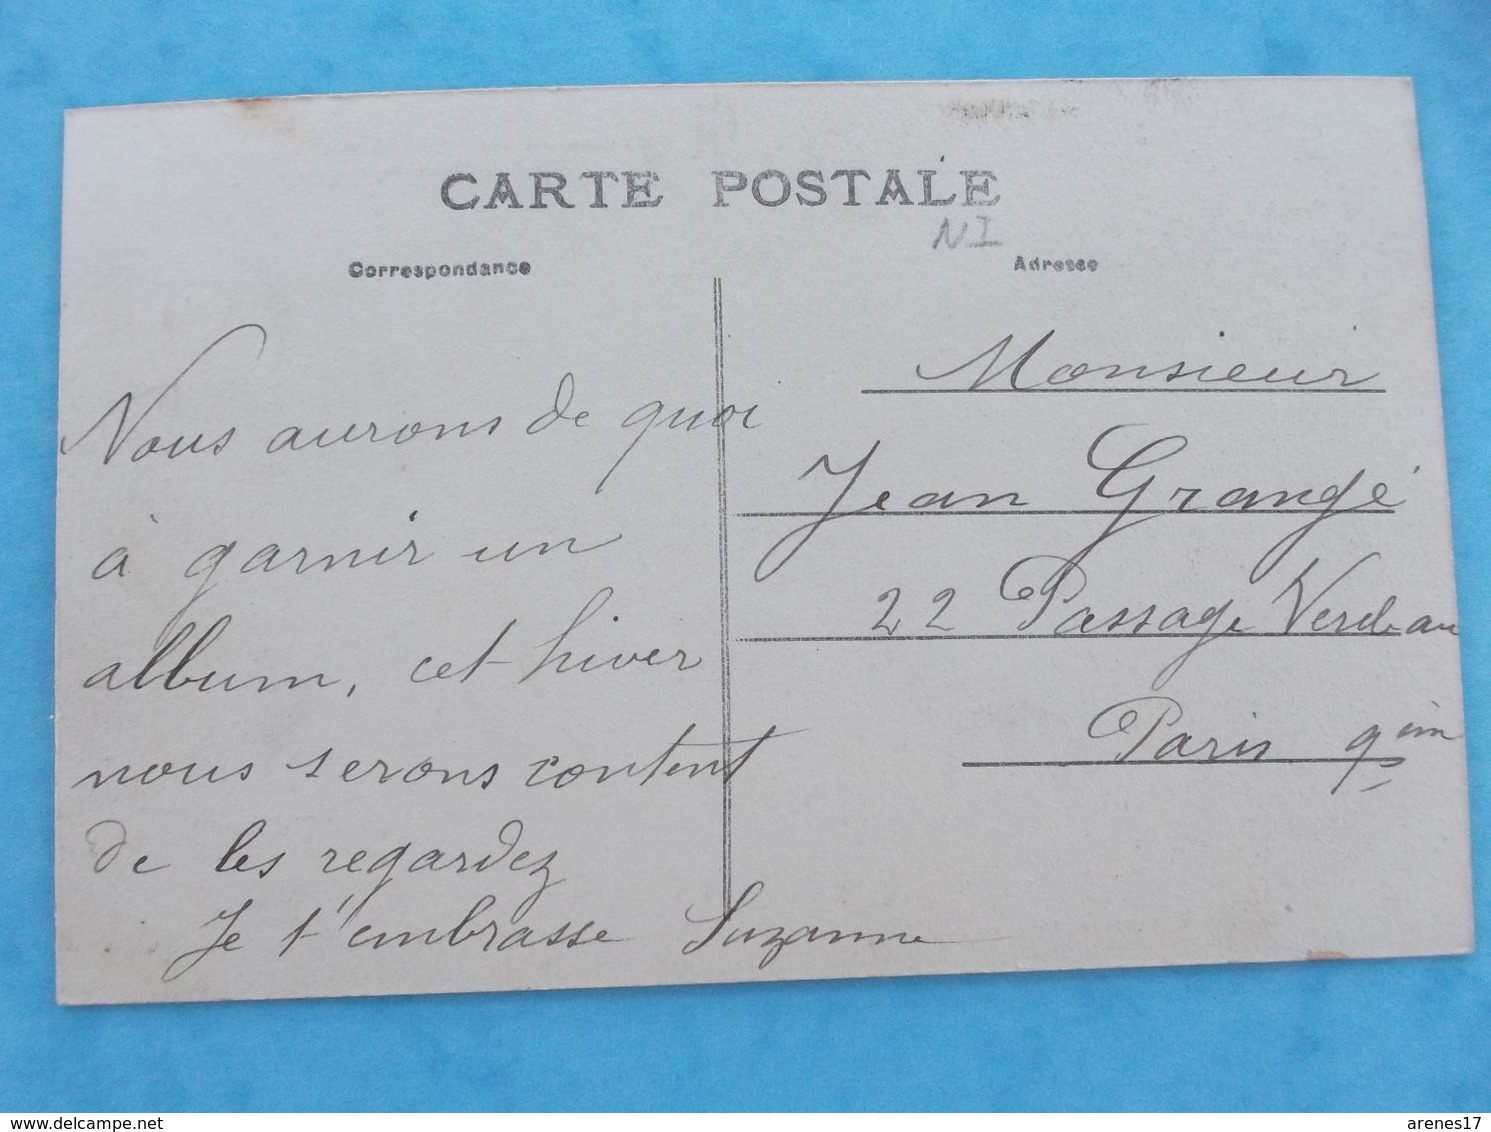 CARTE POSTALE
NI
Correspondance
Adresse
Nous aurons de quoi
à garnir un
album, cet hiver
nous serons content
de les regardez
Je t'embrasse Suzanne
Monsieur
Jean Grangé
22 Passage Verdeau
Paris 9èm
delcampe.net
arenes17